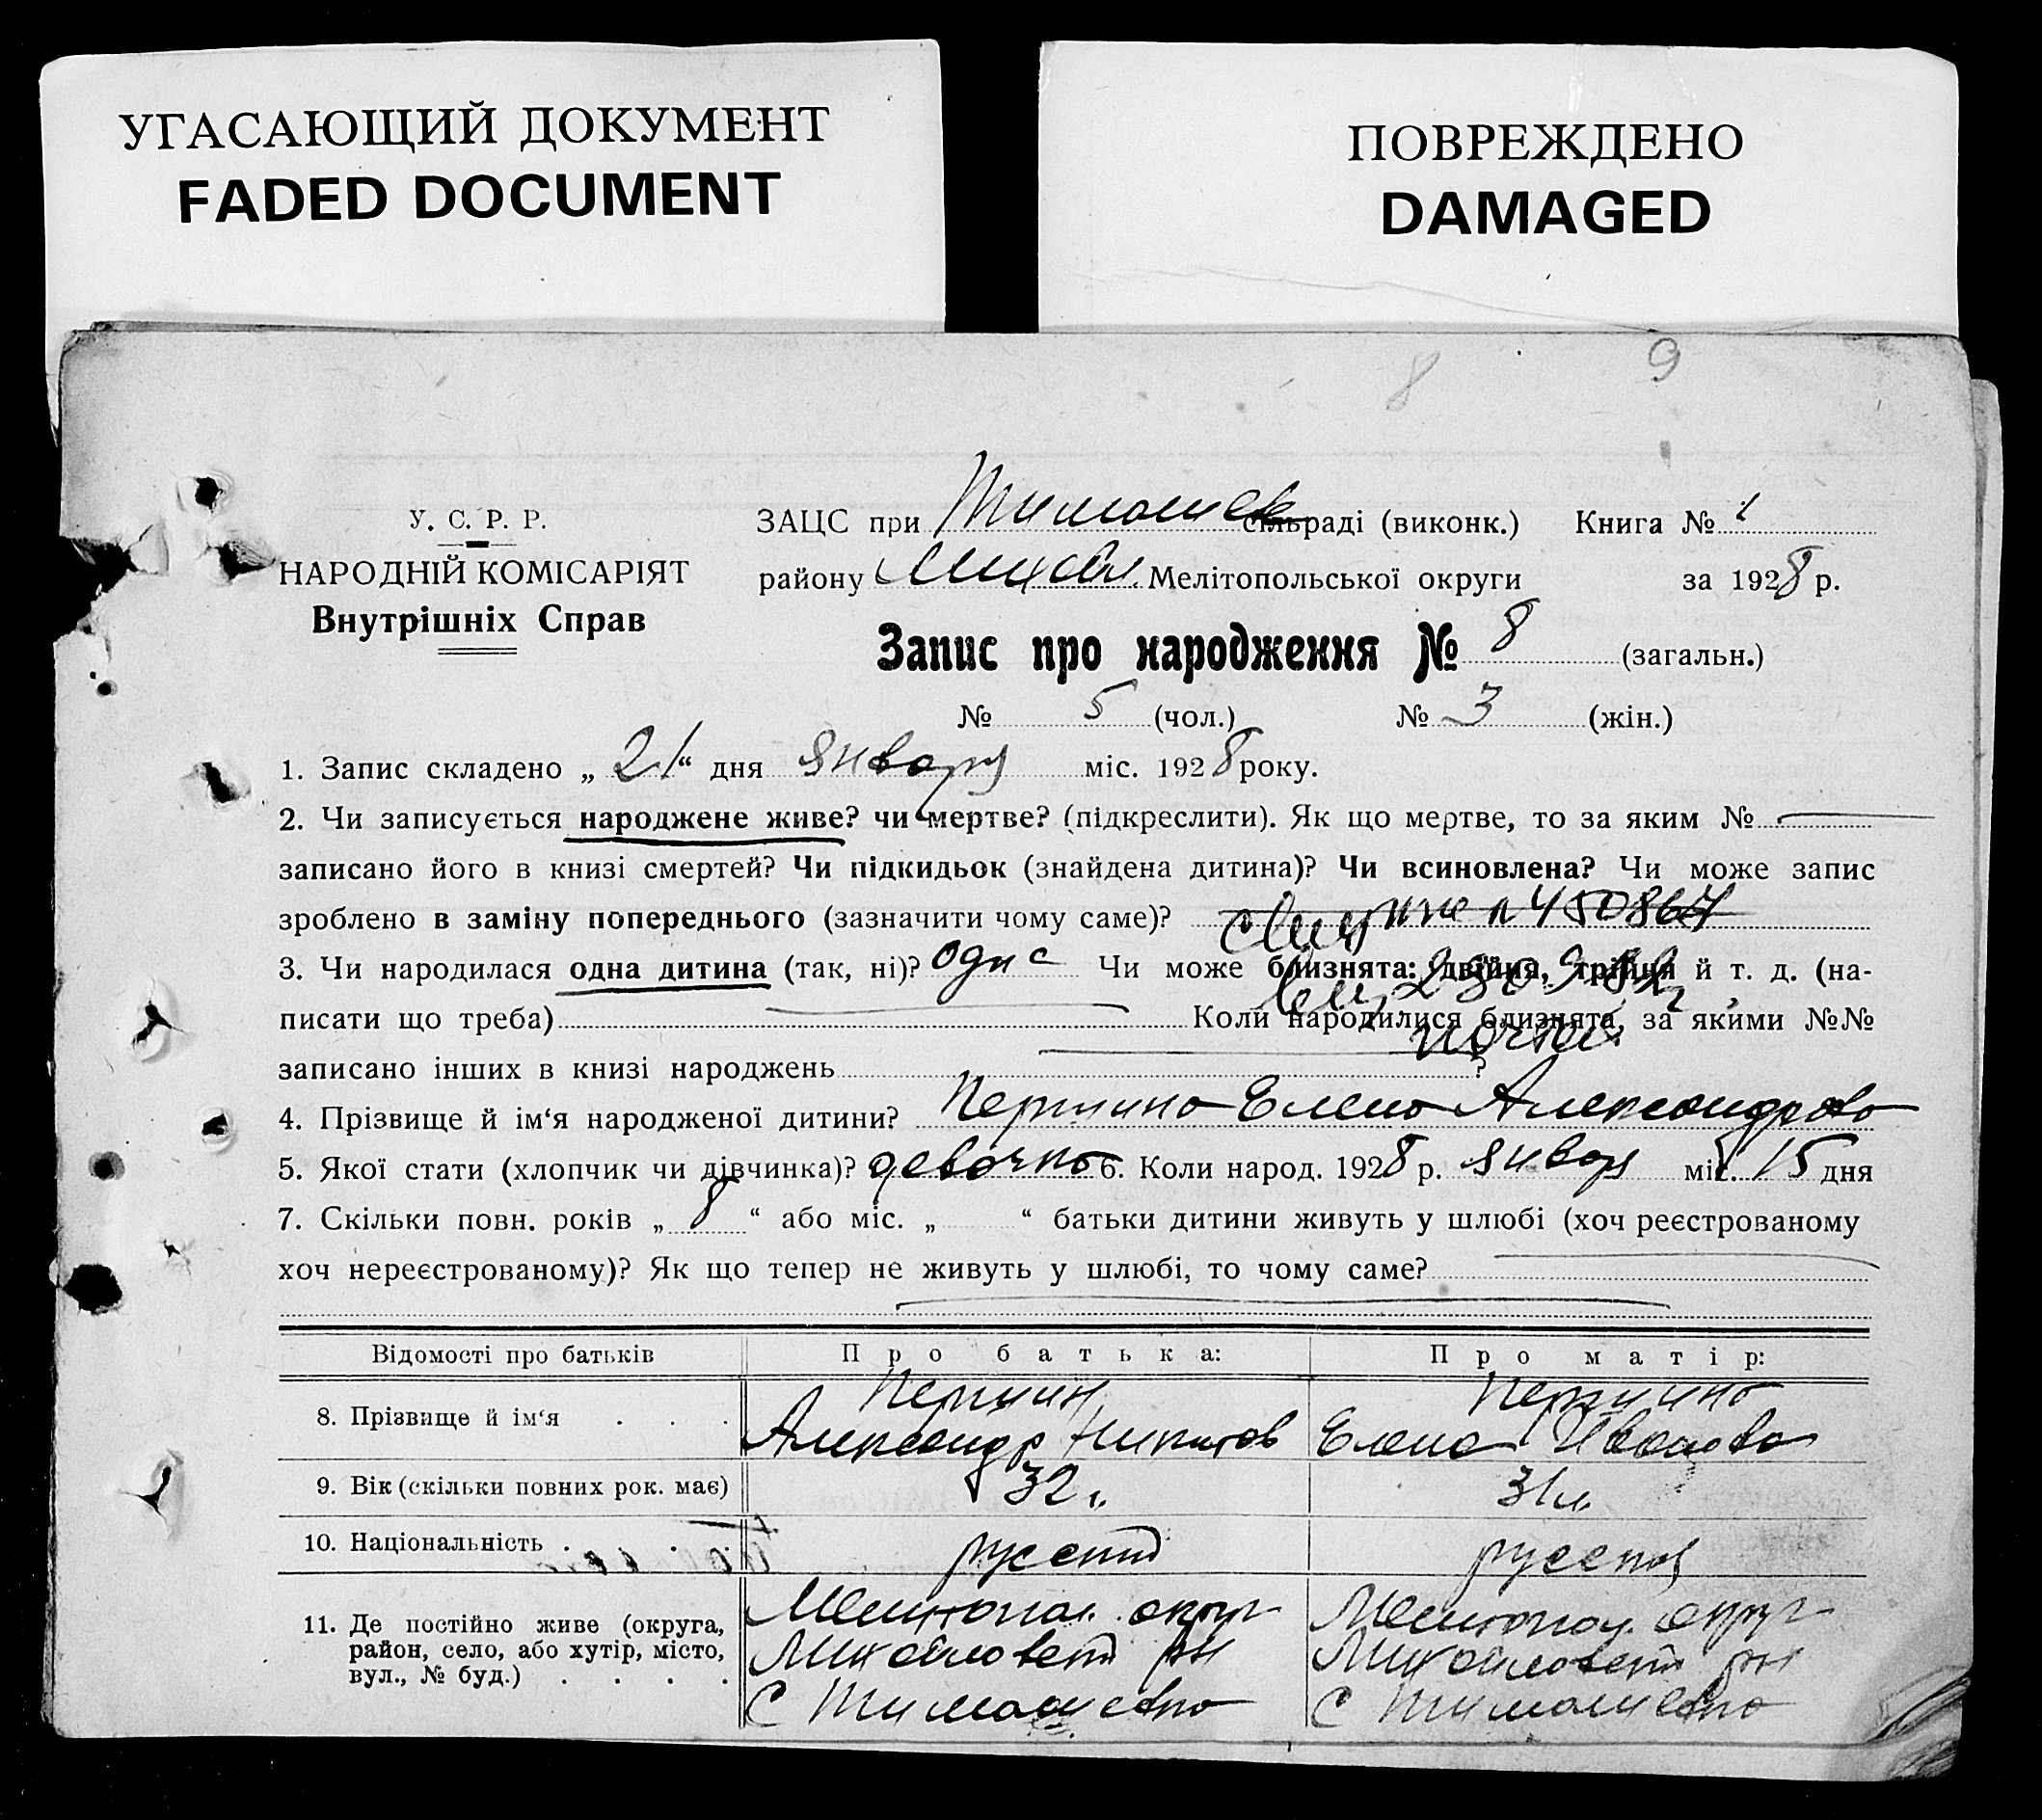 УГАСАЮЩИЙ ДОКУМЕНТ
FADED DOCUMENT
ПОВРЕЖДЕНО
DAMAGED
8 9
У. С. Р. Р.
НАРОДНІЙ КОМІСАРІЯТ
Внутрішніх Справ
ЗАЦС при Тимошев сільраді (виконк.) Книга № 1
району Михайл. Мелітопольської округи за 1928 р.
Запис про народження № 8 (загальн.)
№ 5 (чол.) № 3 (жін.)
1. Запис складено „ 21 “ дня января міс. 1928 року.
2. Чи записується народжене живе? чи мертве? (підкреслити). Як що мертве, то за яким №
записано його в книзі смертей? Чи підкидьок (знайдена дитина)? Чи всиновлена? Чи може запис
зроблено в заміну попереднього (зазначити чому саме)? 450867
3. Чи народилася одна дитина (так, ні)? одна Чи може близнята: двійня, трійня й т. д. (на-
писати що треба) Коли народилися близнята, за якими №№
записано інших в книзі народжень ?
4. Прізвище й ім‘я народженої дитини? Елена Александрова
5. Якої стати (хлопчик чи дівчинка)? девочка 6. Коли народ. 1928 р. январ міс. 15 дня
7. Скільки повн. років „ 8 “ або міс. „ “ батьки дитини живуть у шлюбі (хоч реєстрованому
хоч нереєстрованому)? Як що тепер не живуть у шлюбі, то чому саме?
Відомості про батьків Про батька: Про матір:
8. Прізвище й ім‘я . . .
Александр Никитов Елена Иванова
9. Вік (скільки повних рок. має) 32 г. 31 л.
10. Національність . . . русский русская
11. Де постійно живе (округа, район, село, або хутір, місто, вул., № буд.) . . . .
Мелитопол. округ Мелитопол. округ
Михайловский рн Михайловский рн
С Тимошевка С Тимошевка